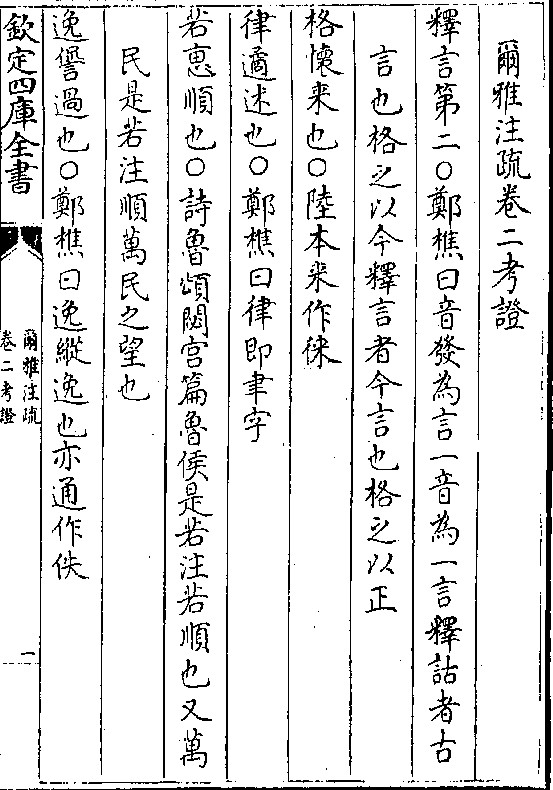 爾雅注疏卷二考證
釋言第二○鄭樵曰音發為言一音為一言釋詁者古
言也格之以今釋言者今言也格之以正
格懷来也○陸本来作徠
律遹述也○鄭樵曰律即聿字
若惠順也○詩魯頌閟宫篇魯侯是若注若順也又萬
民是若注順萬民之望也
逸諐過也○鄭樵曰逸縱逸也亦通作佚
欽定四庫全書
爾雅注疏
卷二考證
一